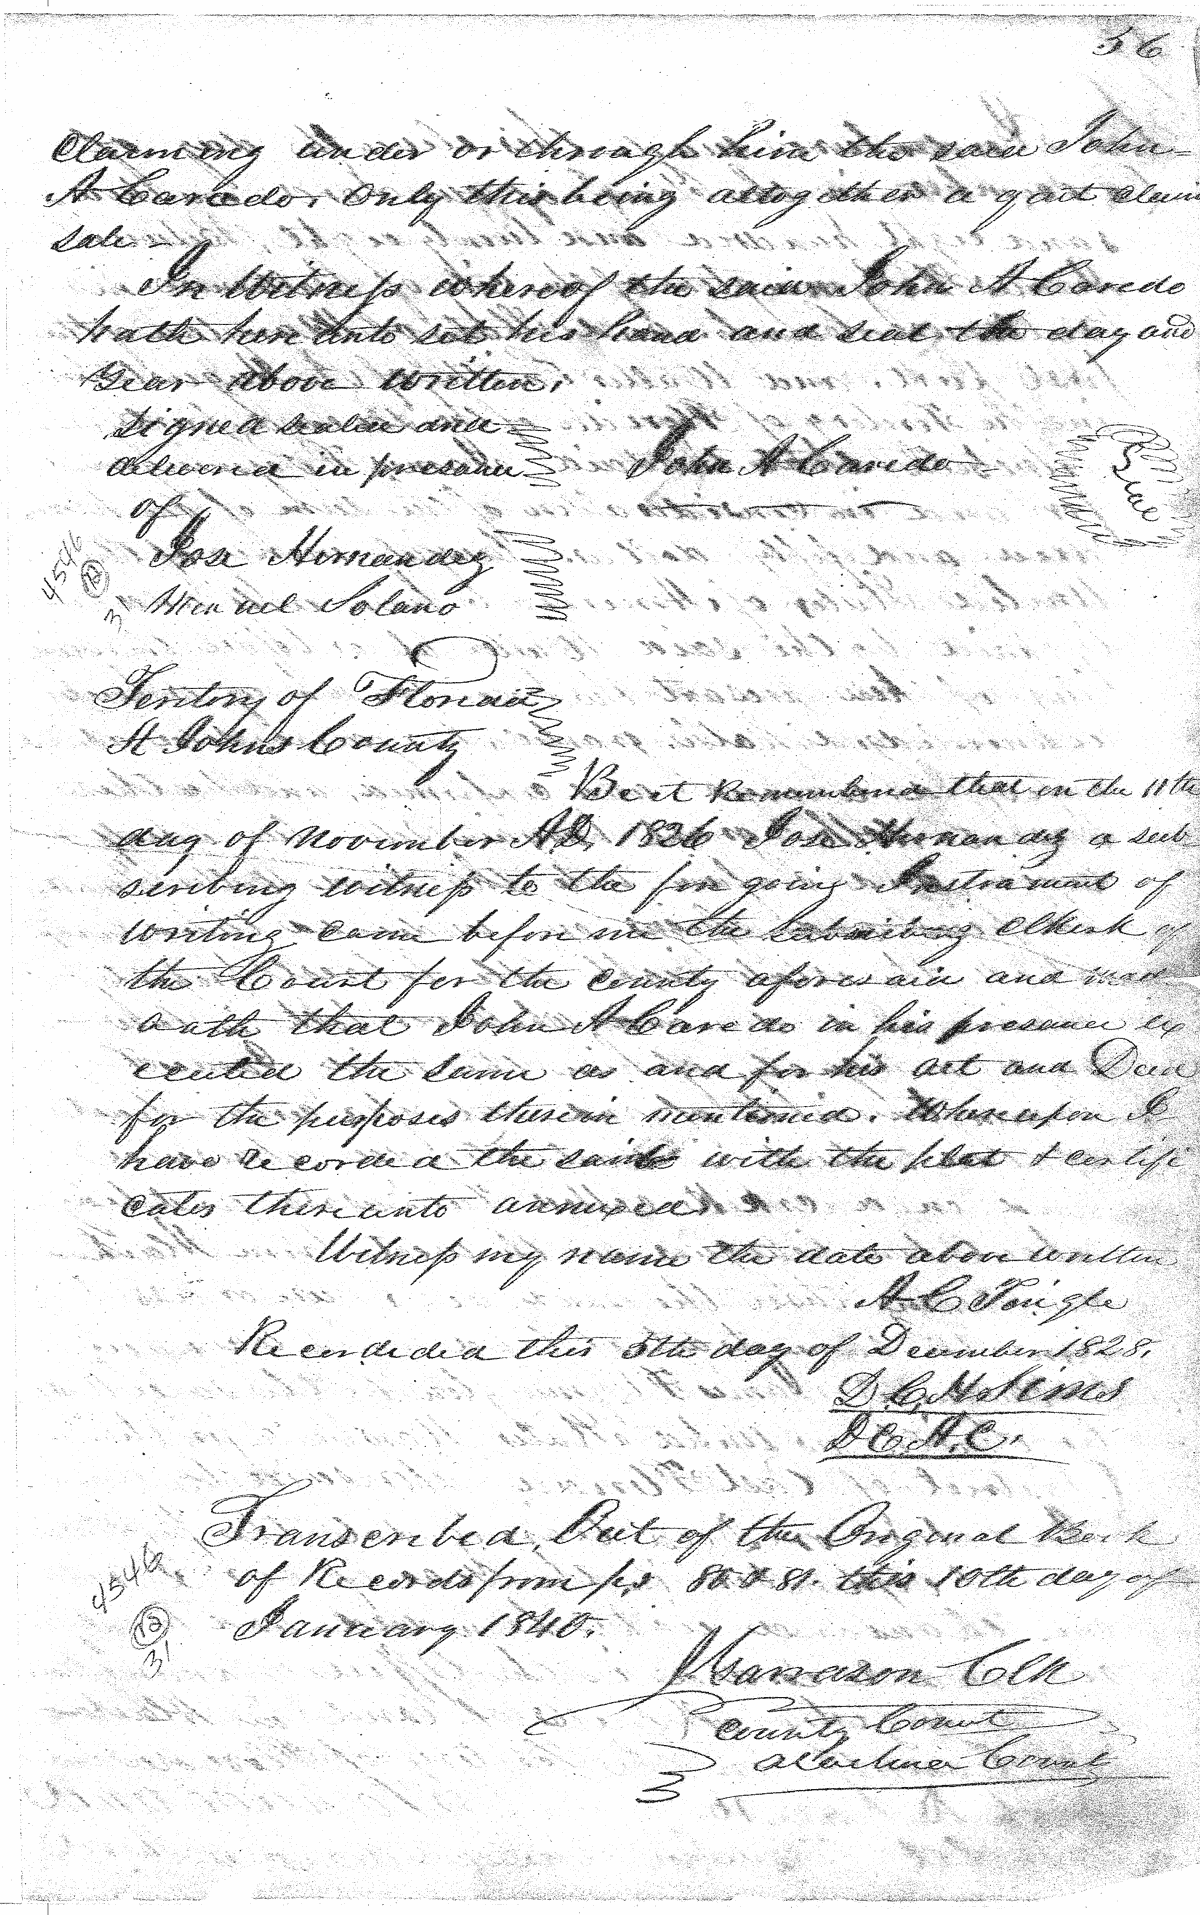 56
Claiming under or through him the said John
A Cavedo. Only this being altogether a quit claim
sale –
In Witness whereof the said John A Cavedo
hath hereunto set his hand and seal the day and
year above written.
Signed sealed and
delivered in presence John A Cavedo Seal
of
Jose Hernandez
Manuel Solano
4546
12
31
Territory of Florida
St Johns County
Be it Remembered that on the 11th
day of November A.D. 1826 Jose Hernandez a sub
scribing witness to the foregoing Instrument of
writing came before me the subscribing Clkerk of
the Court for the county aforesaid and made
oath that John A Cavedo in his presence ex
ecuted the same as and for his act and Deed
for the purposes therein mentioned. Whereupon I
have recorded the same with the plat & certifi
cates thereunto annexed.
Witness my name the date above written
A C Tingle
Recorded this 5th day of December 1828.
D. C. H Sims
D C. A. C.
Transcribed, Out of the Original Book
of Records from ps 80 & 81. this 10th day of
January 1840.
4546
12
31
Clk
County Court
Alachua County